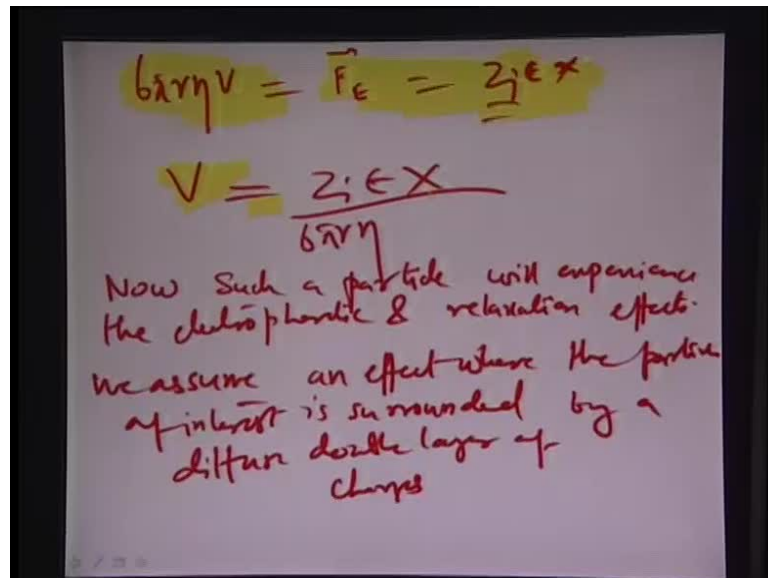 6πrηV = F⃗ε = Ziεx
V = ZiεX / 6πrη
Now such a particle will experience
the electrophoretic & relaxation effects.
We assume an effect where the particle
of interest is surrounded by a
diffuse double layer of
charges